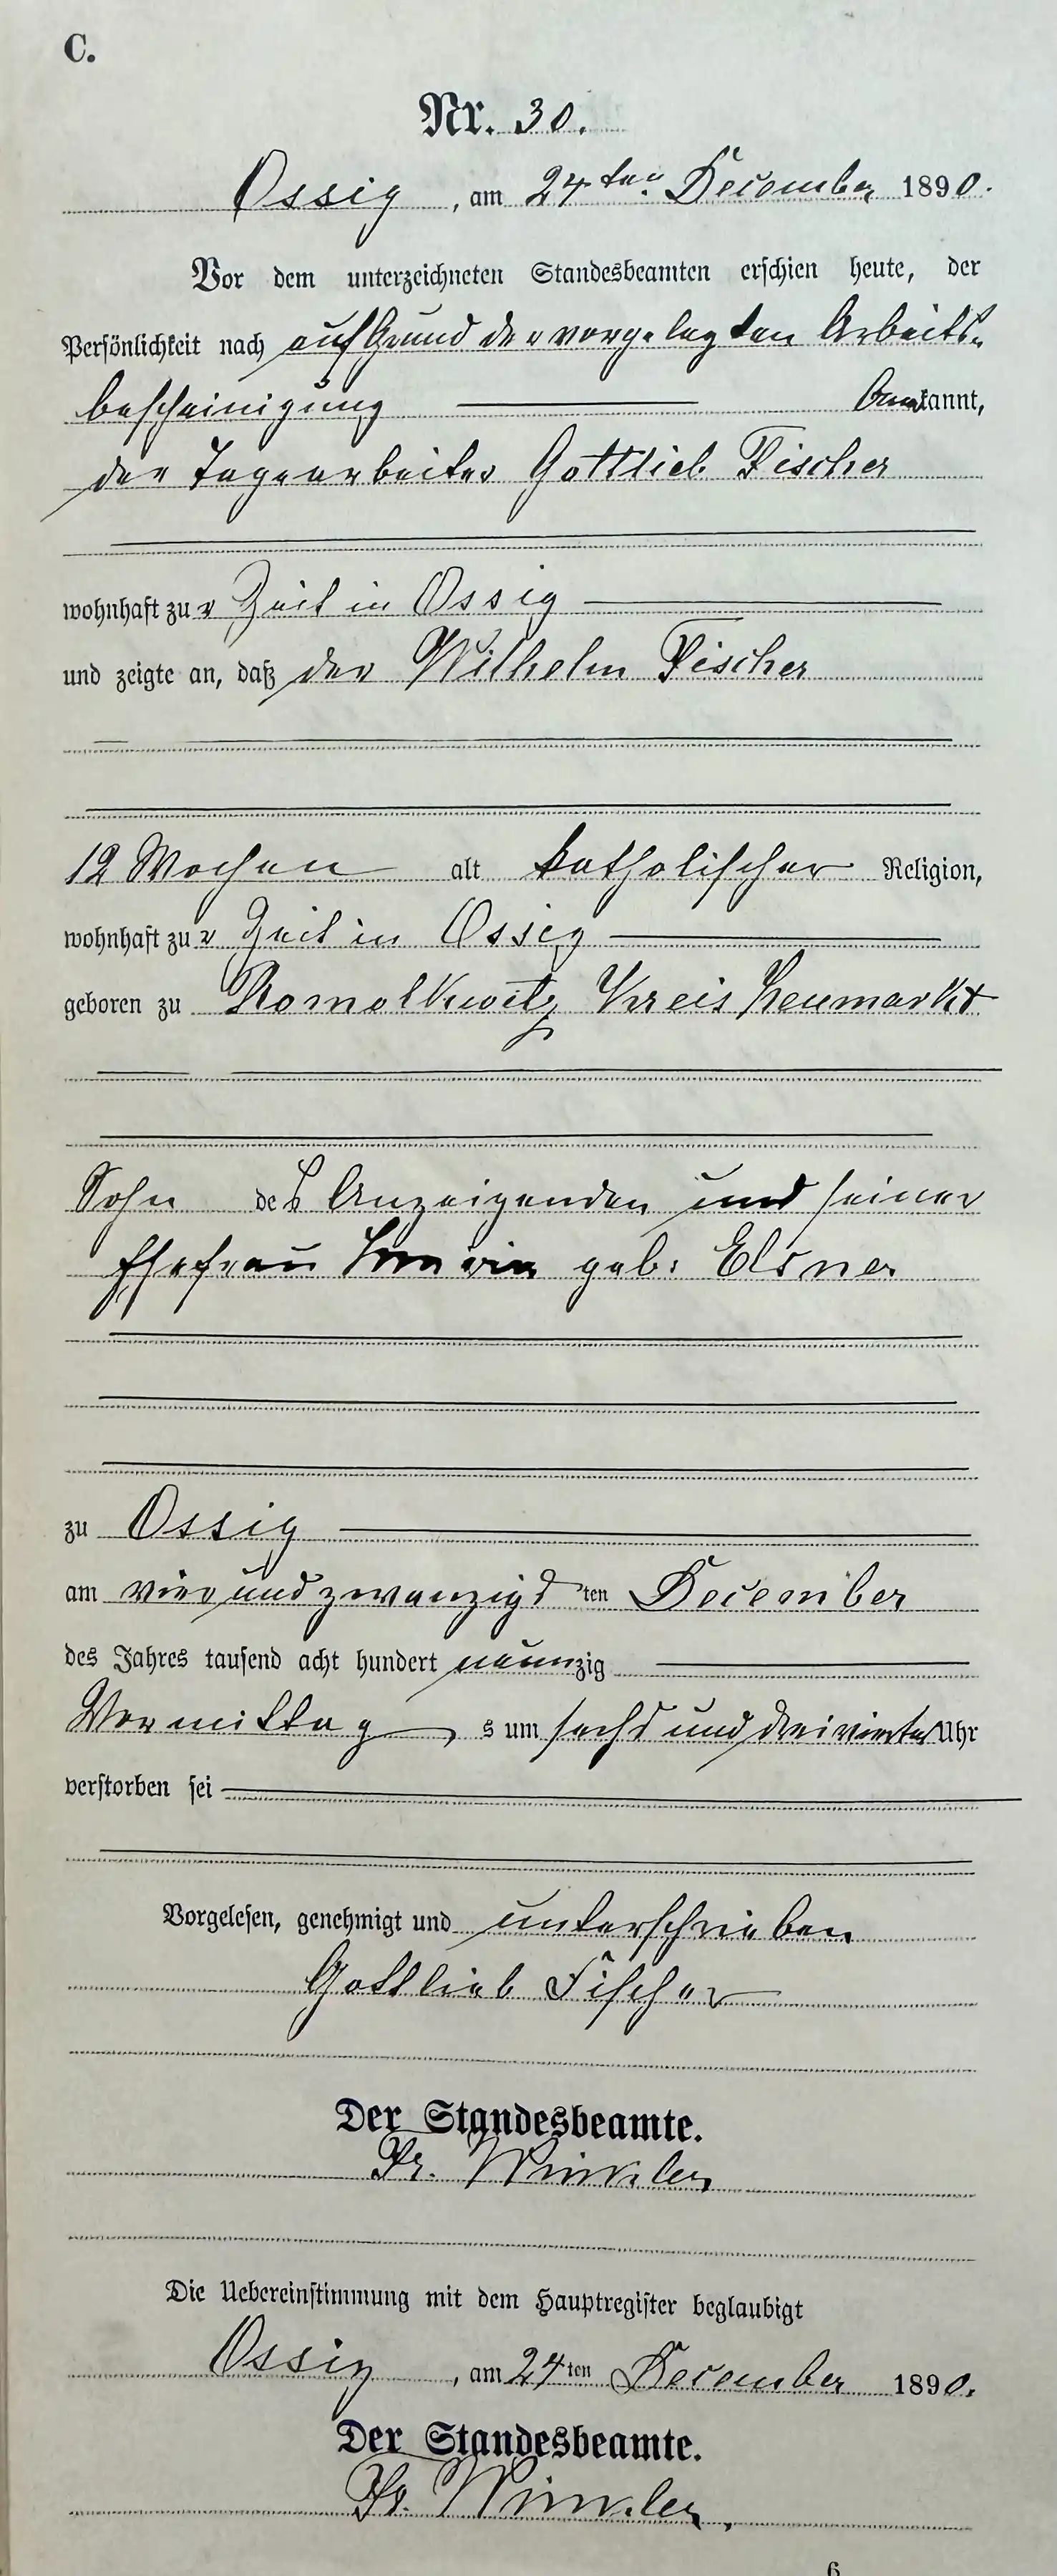 C.
Nr. 30.
Ossig, am 24ten December 1890.
Vor dem unterzeichneten Standesbeamten erschien heute, der
Persönlichkeit nach auf Grund der vorgelegten Arbeits-
bescheinigung kannt,
der Tagearbeiter Gottlieb Fischer
wohnhaft zur Zeit in Ossig
und zeigte an, daß der Wilhelm Fischer
12 Wochen alt katholischer Religion,
wohnhaft zur Zeit in Ossig
geboren zu Romolkwitz Kreis Neumarkt
Sohn des Anzeigenden und seiner
Ehefrau geb. Elsner
zu Ossig
am vierundzwanzigsten December
des Jahres tausend acht hundert neunzig
Vormittags um sechs und dreiviertel Uhr
verstorben sei
Vorgelesen, genehmigt und unterschrieben
Gottlieb Fischer
Der Standesbeamte.
Fr. Winkler
Die Uebereinstimmung mit dem Hauptregister beglaubigt
Ossig, am 24ten December 1890.
Der Standesbeamte.
Fr. Winkler.
6